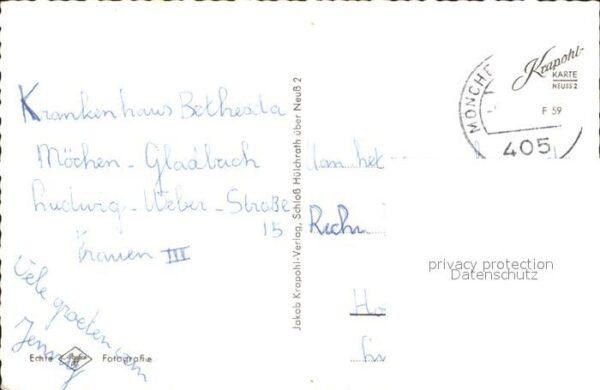 Krankenhaus Bethesda
Möchen-Gladbach
Ludwig-Weber-Straße
15
Frauen III
Vele groeten van
Jenny
Echte Agfa Fotografie
Jakob Krapohl-Verlag, Schloß Hülchrath über Neuß 2
MÖNCHE
405
Krapohl-
KARTE
NEUSS 2
F 59
privacy protection
Datenschutz